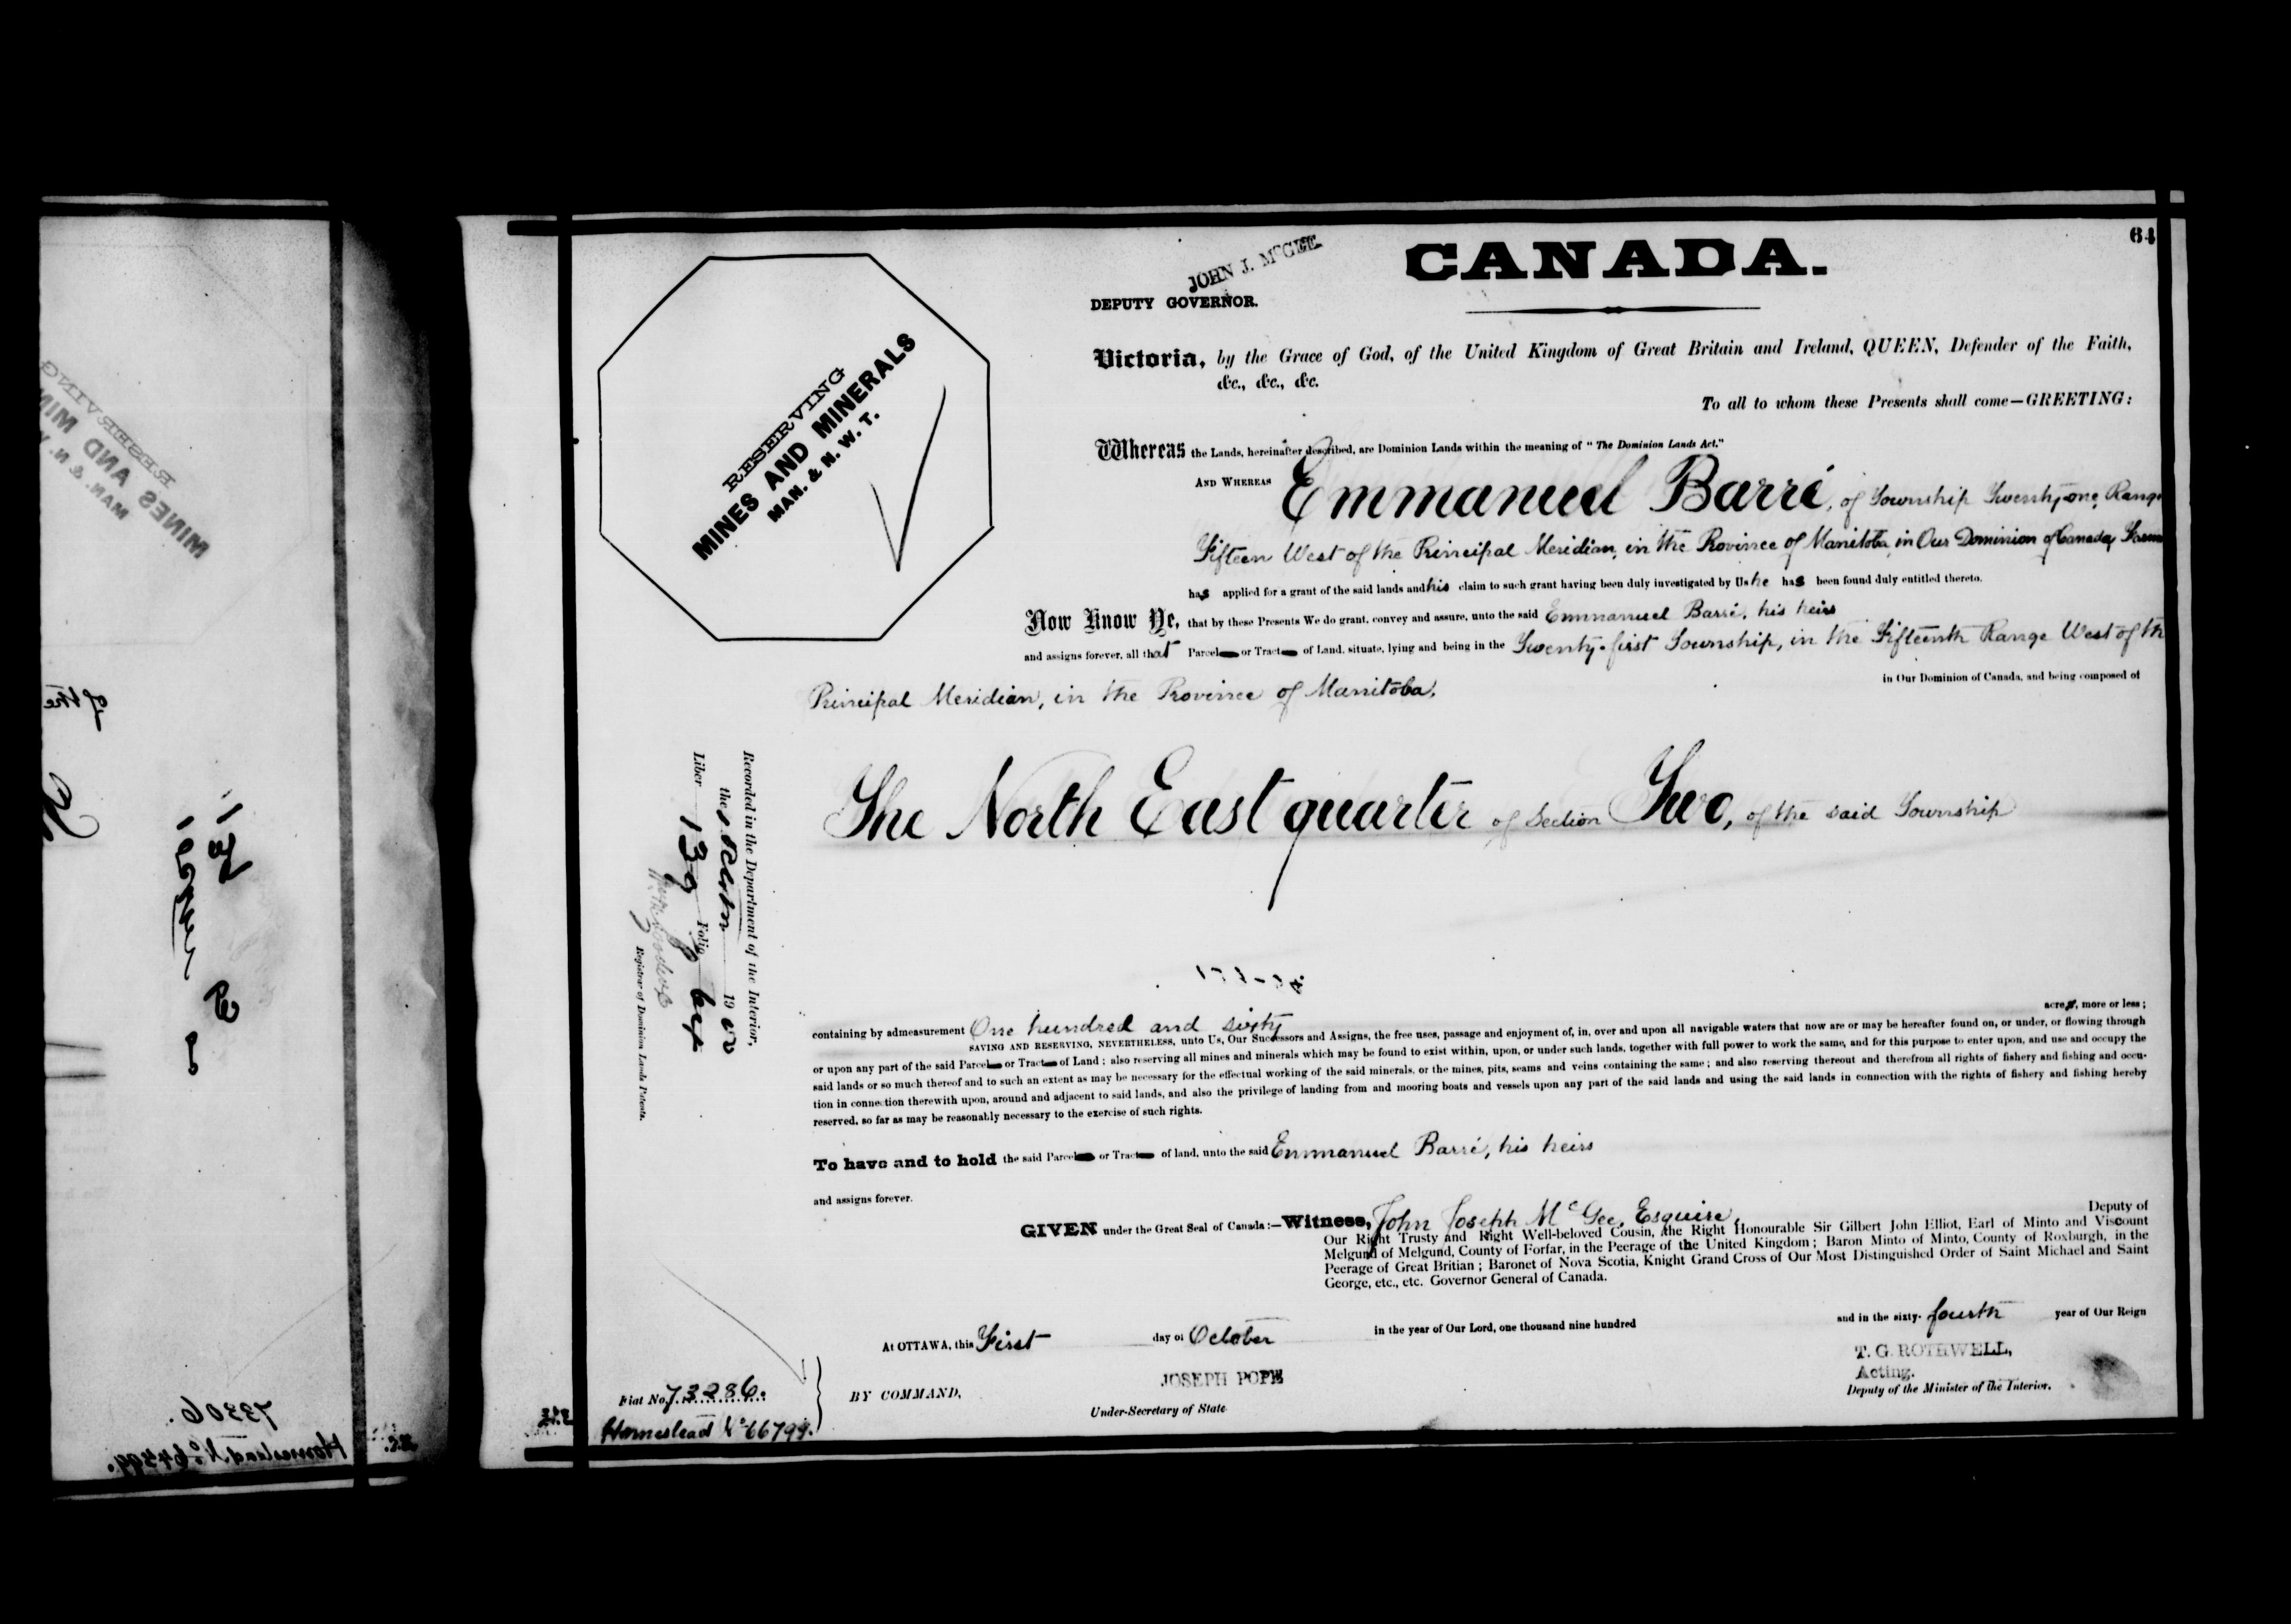 64
CANADA.
JOHN J. McGEE
DEPUTY GOVERNOR.
RESERVING
MINES AND MINERALS
MAN. & N. W. T.
Victoria, by the Grace of God, of the United Kingdom of Great Britain and Ireland, QUEEN, Defender of the Faith,
&c., &c., &c.
To all to whom these Presents shall come—GREETING:
Whereas the Lands, hereinafter described, are Dominion Lands within the meaning of "The Dominion Lands Act."
AND WHEREAS Emmanuel Barré, of Township Twenty-one, Range
Fifteen West of the Principal Meridian, in the Province of Manitoba, in Our Dominion of Canada, Farm
has applied for a grant of the said lands and his claim to such grant having been duly investigated by Us he has been found duly entitled thereto.
Now Know Ye, that by these Presents We do grant, convey and assure, unto the said Emmanuel Barré, his heirs
and assigns forever, all that Parcel or Tract of Land, situate, lying and being in the Twenty-first Township, in the Fifteenth Range West of th
Principal Meridian, in the Province of Manitoba,
in Our Dominion of Canada, and being composed of
The North East quarter of Section Two, of the said Township
Recorded in the Department of the Interior,
the 19
Liber 139 Folio 64
Registrar of Dominion Lands Patents.
containing by admeasurement One hundred and sixty acres, more or less;
SAVING AND RESERVING, NEVERTHELESS, unto Us, Our Successors and Assigns, the free uses, passage and enjoyment of, in, over and upon all navigable waters that now are or may be hereafter found on, or under, or flowing through
or upon any part of the said Parcel or Tract of Land; also reserving all mines and minerals which may be found to exist within, upon, or under such lands, together with full power to work the same, and for this purpose to enter upon, and use and occupy the
said lands or so much thereof and to such an extent as may be necessary for the effectual working of the said minerals, or the mines, pits, seams and veins containing the same; and also reserving thereout and therefrom all rights of fishery and fishing and occu-
tion in connection therewith upon, around and adjacent to said lands, and also the privilege of landing from and mooring boats and vessels upon any part of the said lands and using the said lands in connection with the rights of fishery and fishing hereby
reserved, so far as may be reasonably necessary to the exercise of such rights.
To have and to hold the said Parcel or Tract of land, unto the said Emmanuel Barré, his heirs
and assigns forever.
GIVEN under the Great Seal of Canada:—Witness, John Joseph McGee, Esquire, Deputy of
Our Right Trusty and Right Well-beloved Cousin, the Right Honourable Sir Gilbert John Elliot, Earl of Minto and Viscount
Melgund of Melgund, County of Forfar, in the Peerage of the United Kingdom; Baron Minto of Minto, County of Roxburgh, in the
Peerage of Great Britian; Baronet of Nova Scotia, Knight Grand Cross of Our Most Distinguished Order of Saint Michael and Saint
George, etc., etc. Governor General of Canada.
At OTTAWA, this First day of October in the year of Our Lord, one thousand nine hundred and in the sixty-fourth year of Our Reign
T. G. ROTHWELL,
Acting.
Deputy of the Minister of the Interior.
BY COMMAND,
JOSEPH POPE
Under-Secretary of State
Fiat No. 73286.
Homestead No 66799.
RESERVING
MINES AND MIN
MAN. & N.
of the
73306.
Homestead No 64599.